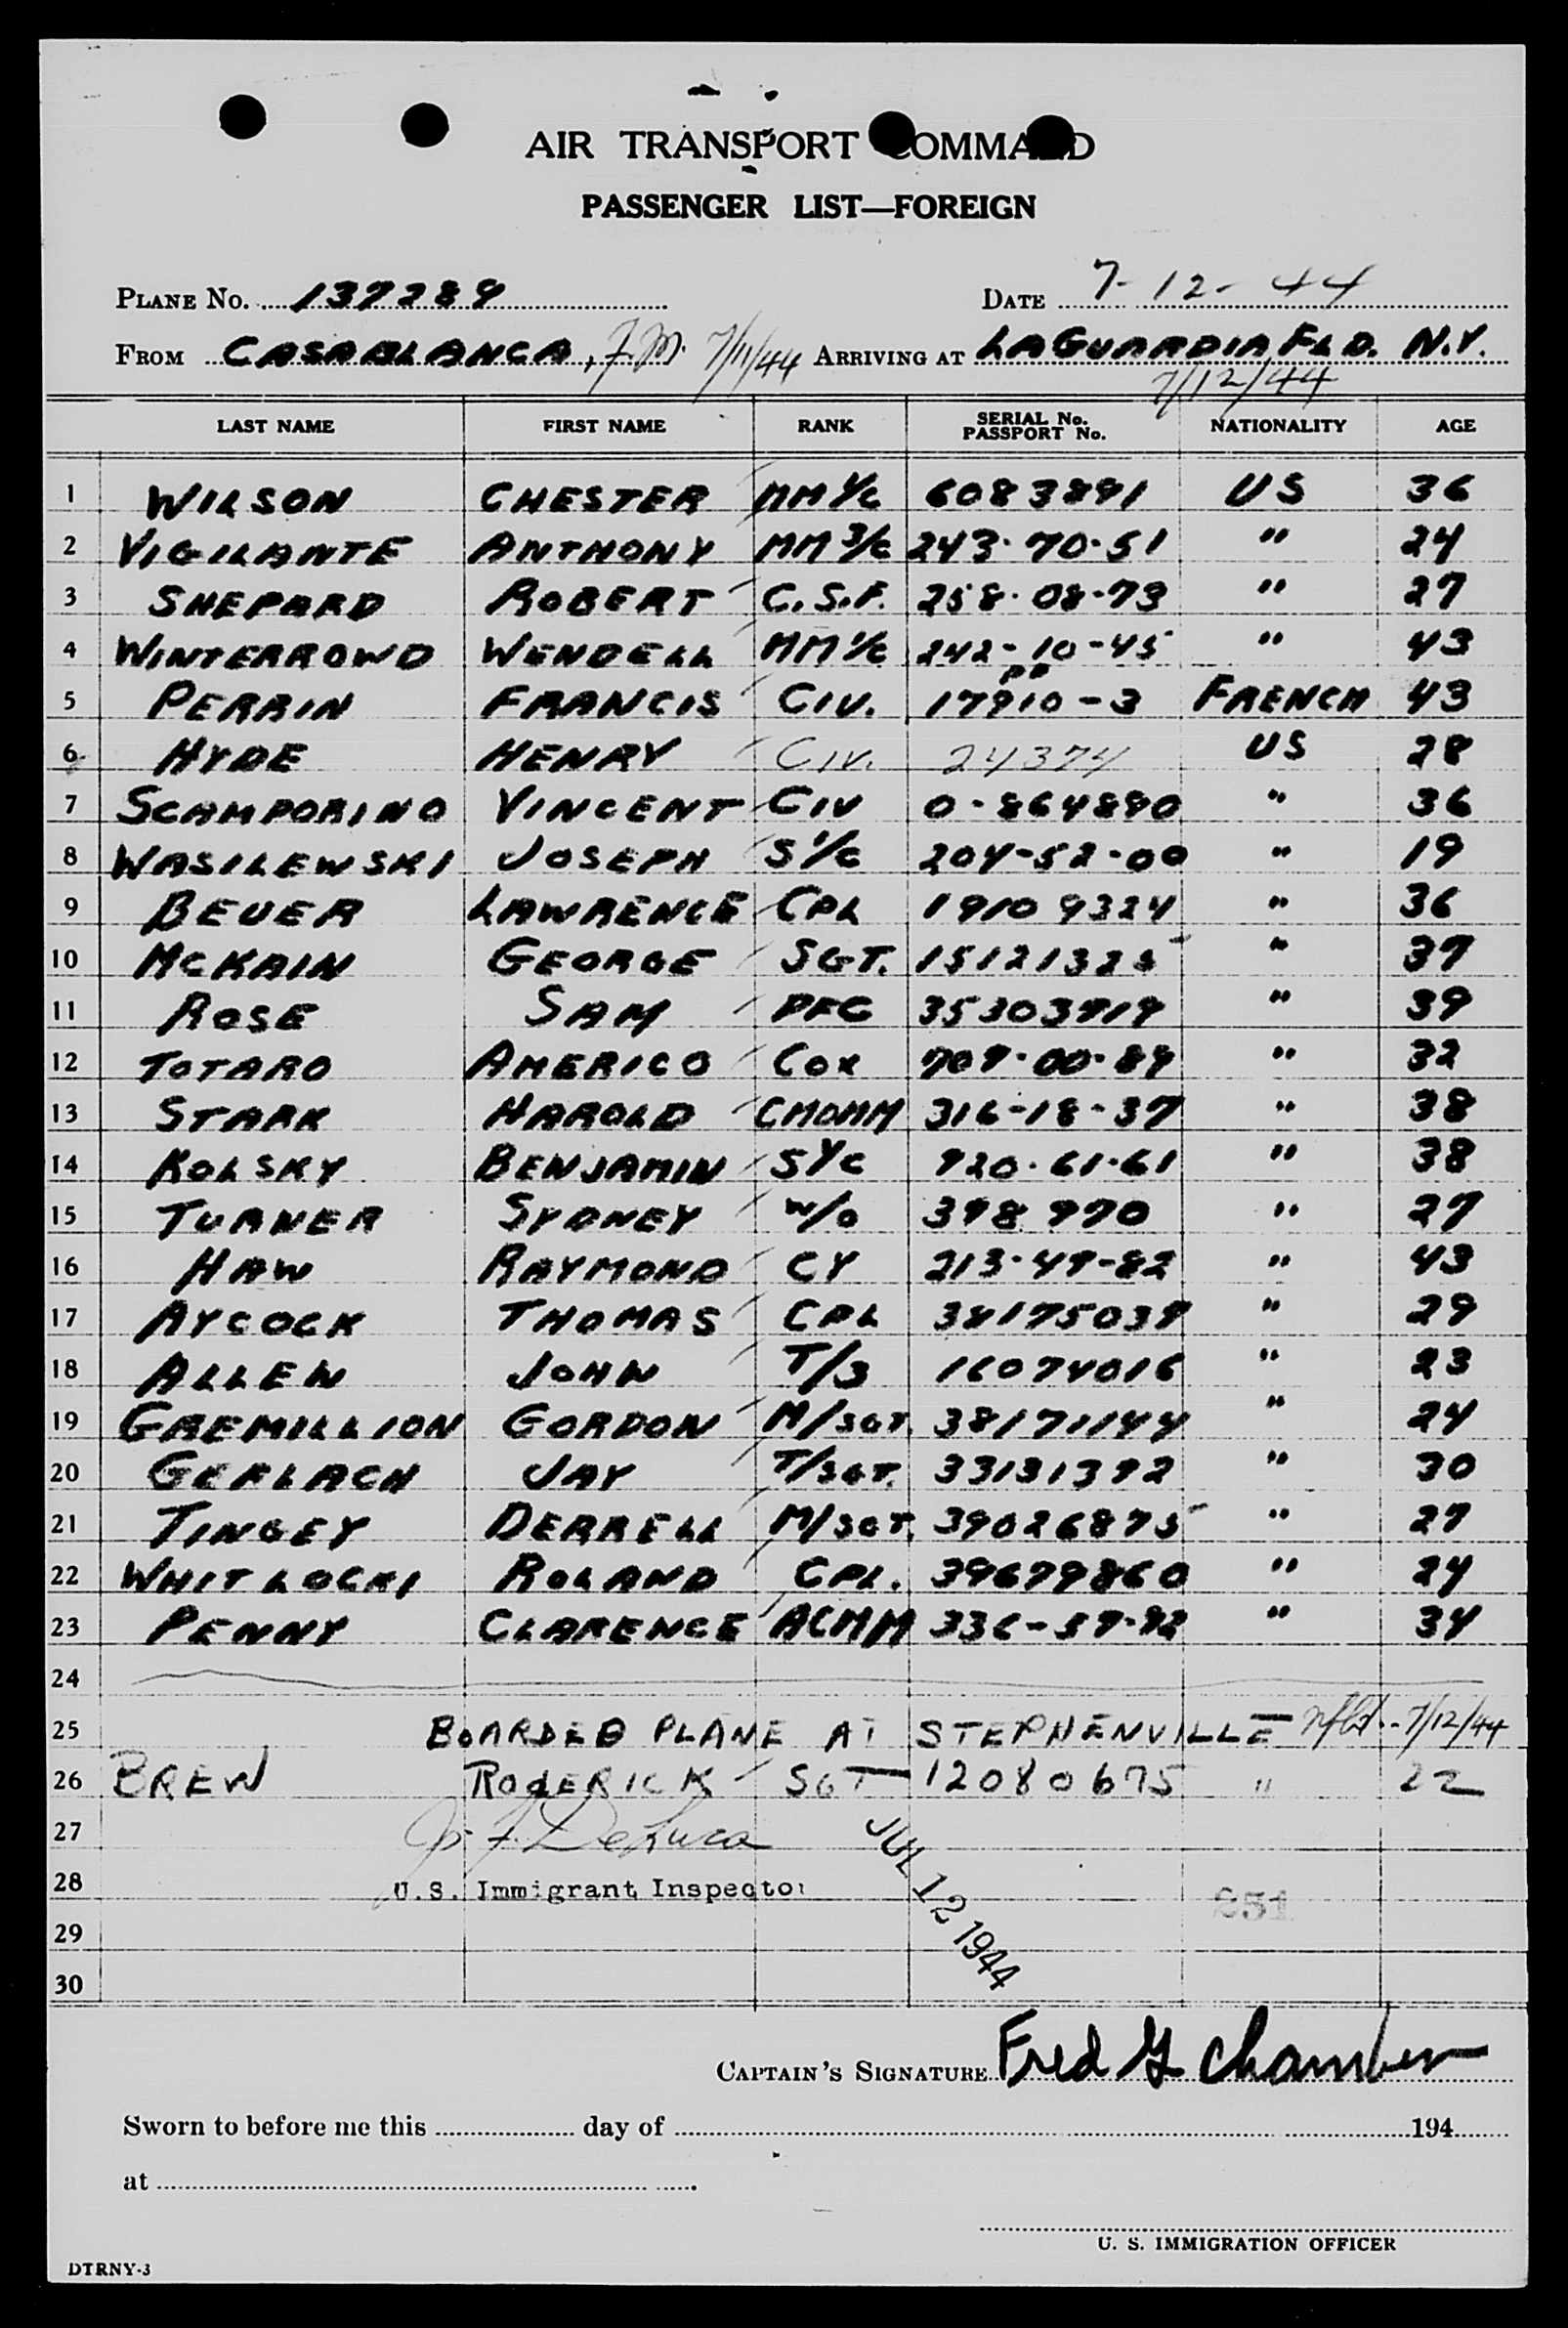 AIR TRANSPORT COMMAND
PASSENGER LIST—FOREIGN
PLANE No. 137289 DATE 7-12-44
FROM CASABLANCA, F.M. 7/11/44 ARRIVING AT LAGUARDIA FLD. N.Y.
7/12/44
LAST NAME FIRST NAME RANK SERIAL No. PASSPORT No. NATIONALITY AGE
1 WILSON CHESTER MM 1/C 6083891 US 36
2 VIGILANTE ANTHONY MM 3/C 243-70-51 " 24
3 SHEPARD ROBERT C.S.F. 258-08-73 " 27
4 WINTERROWD WENDELL MM 1/C 242-10-45 " 43
5 PERRIN FRANCIS CIV. PP 17910-3 FRENCH 43
6 HYDE HENRY CIV. 24374 US 28
7 SCAMPORINO VINCENT CIV 0-864890 " 36
8 WASILEWSKI JOSEPH S 1/C 204-52-00 " 19
9 BEUER LAWRENCE CPL 19109324 " 36
10 MCKAIN GEORGE SGT. 15121325 " 37
11 ROSE SAM PFC 35303919 " 39
12 TOTARO AMERICO COX 709-00-89 " 32
13 STARK HAROLD CMOMM 316-18-37 " 38
14 KOLSKY BENJAMIN S 1/C 920-61-61 " 38
15 TURNER SYDNEY W/O 398970 " 27
16 HAW RAYMOND CY 213-49-82 " 43
17 AYCOCK THOMAS CPL 38175039 " 29
18 ALLEN JOHN T/3 16074016 " 23
19 GREMILLION GORDON M/SGT 38171144 " 24
20 GERLACH JAY T/SGT. 33131392 " 30
21 TINGEY DERRELL M/SGT. 39026875 " 27
22 WHITLOCKI ROLAND CPL. 39679860 " 24
23 PENNY CLARENCE ACMM 336-59-92 " 34
24
25 BOARDED PLANE AT STEPHENVILLE Nfld. 7/12/44
26 BREW RODERICK SGT 12080675 " 22
27 DeLuca
28 U.S. Immigrant Inspector
JUL 12 1944
251
29
30
CAPTAIN'S SIGNATURE Fred G Chamber
Sworn to before me this day of 194
at
U. S. IMMIGRATION OFFICER
DTRNY-3